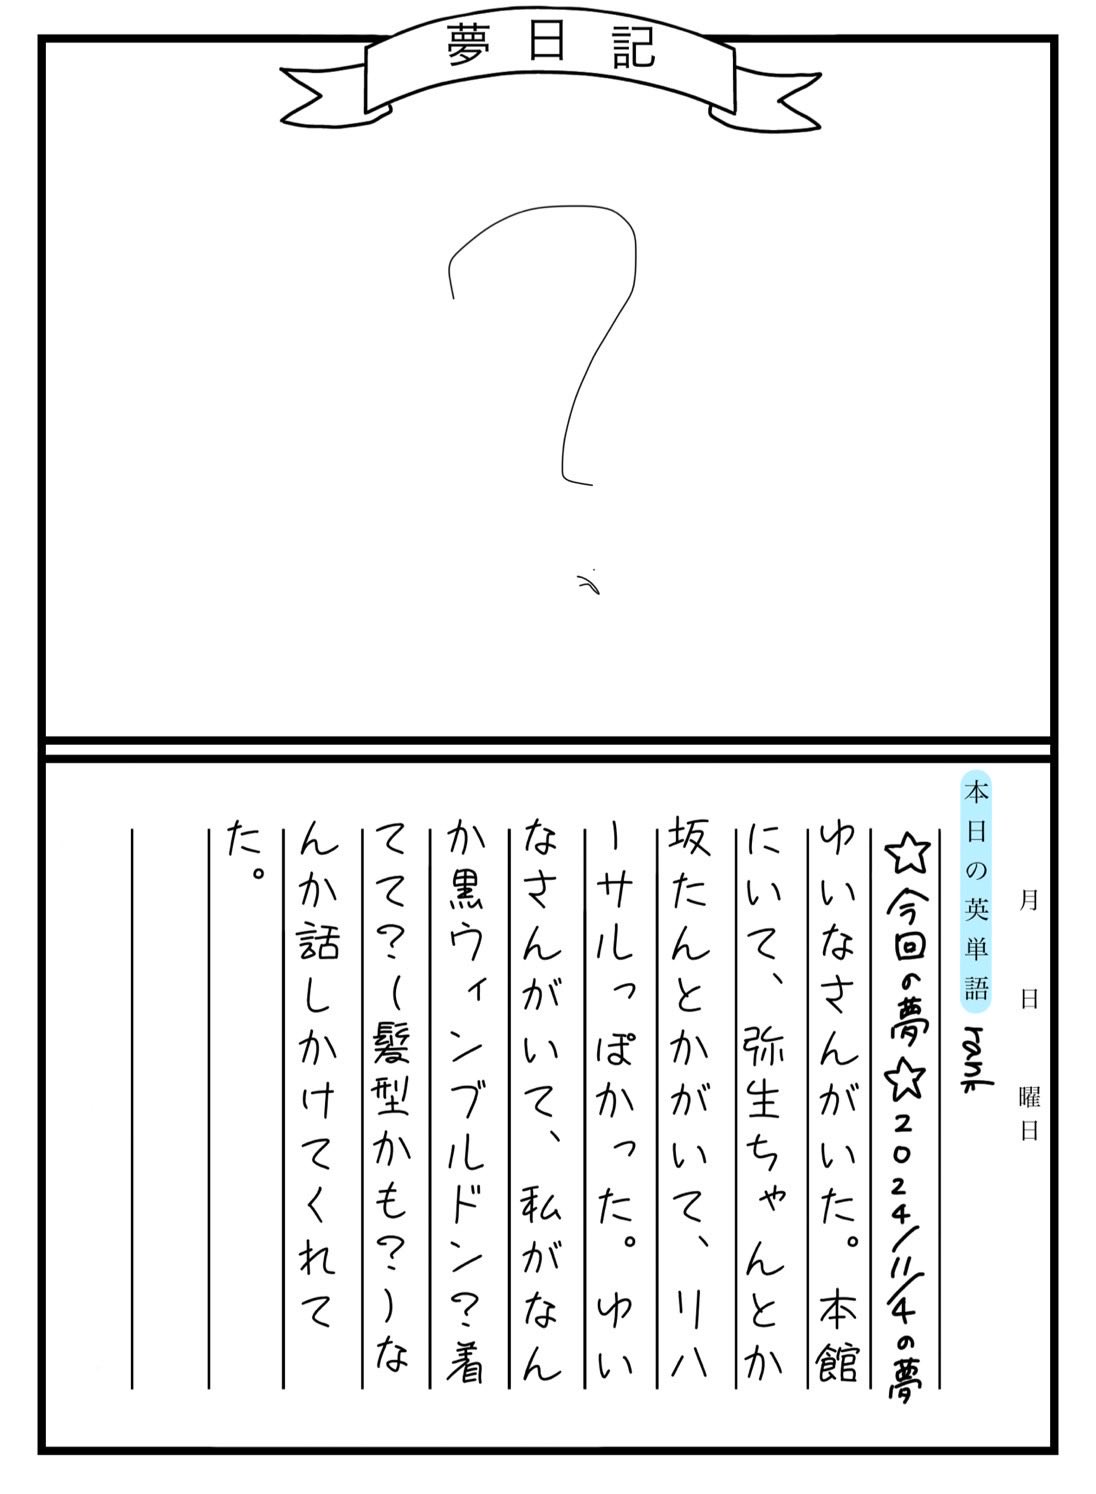 夢日記
月　日　曜日
本日の英単語 rank
☆今回の夢☆2024/11/4の夢
ゆいなさんがいた。本館
にいて、弥生ちゃんとか
坂たんとかがいて、リハ
ーサルっぽかった。ゆい
なさんがいて、私がなん
か黒ウィンブルドン？着
てて？(髪型かも？)な
んか話しかけてくれて
た。